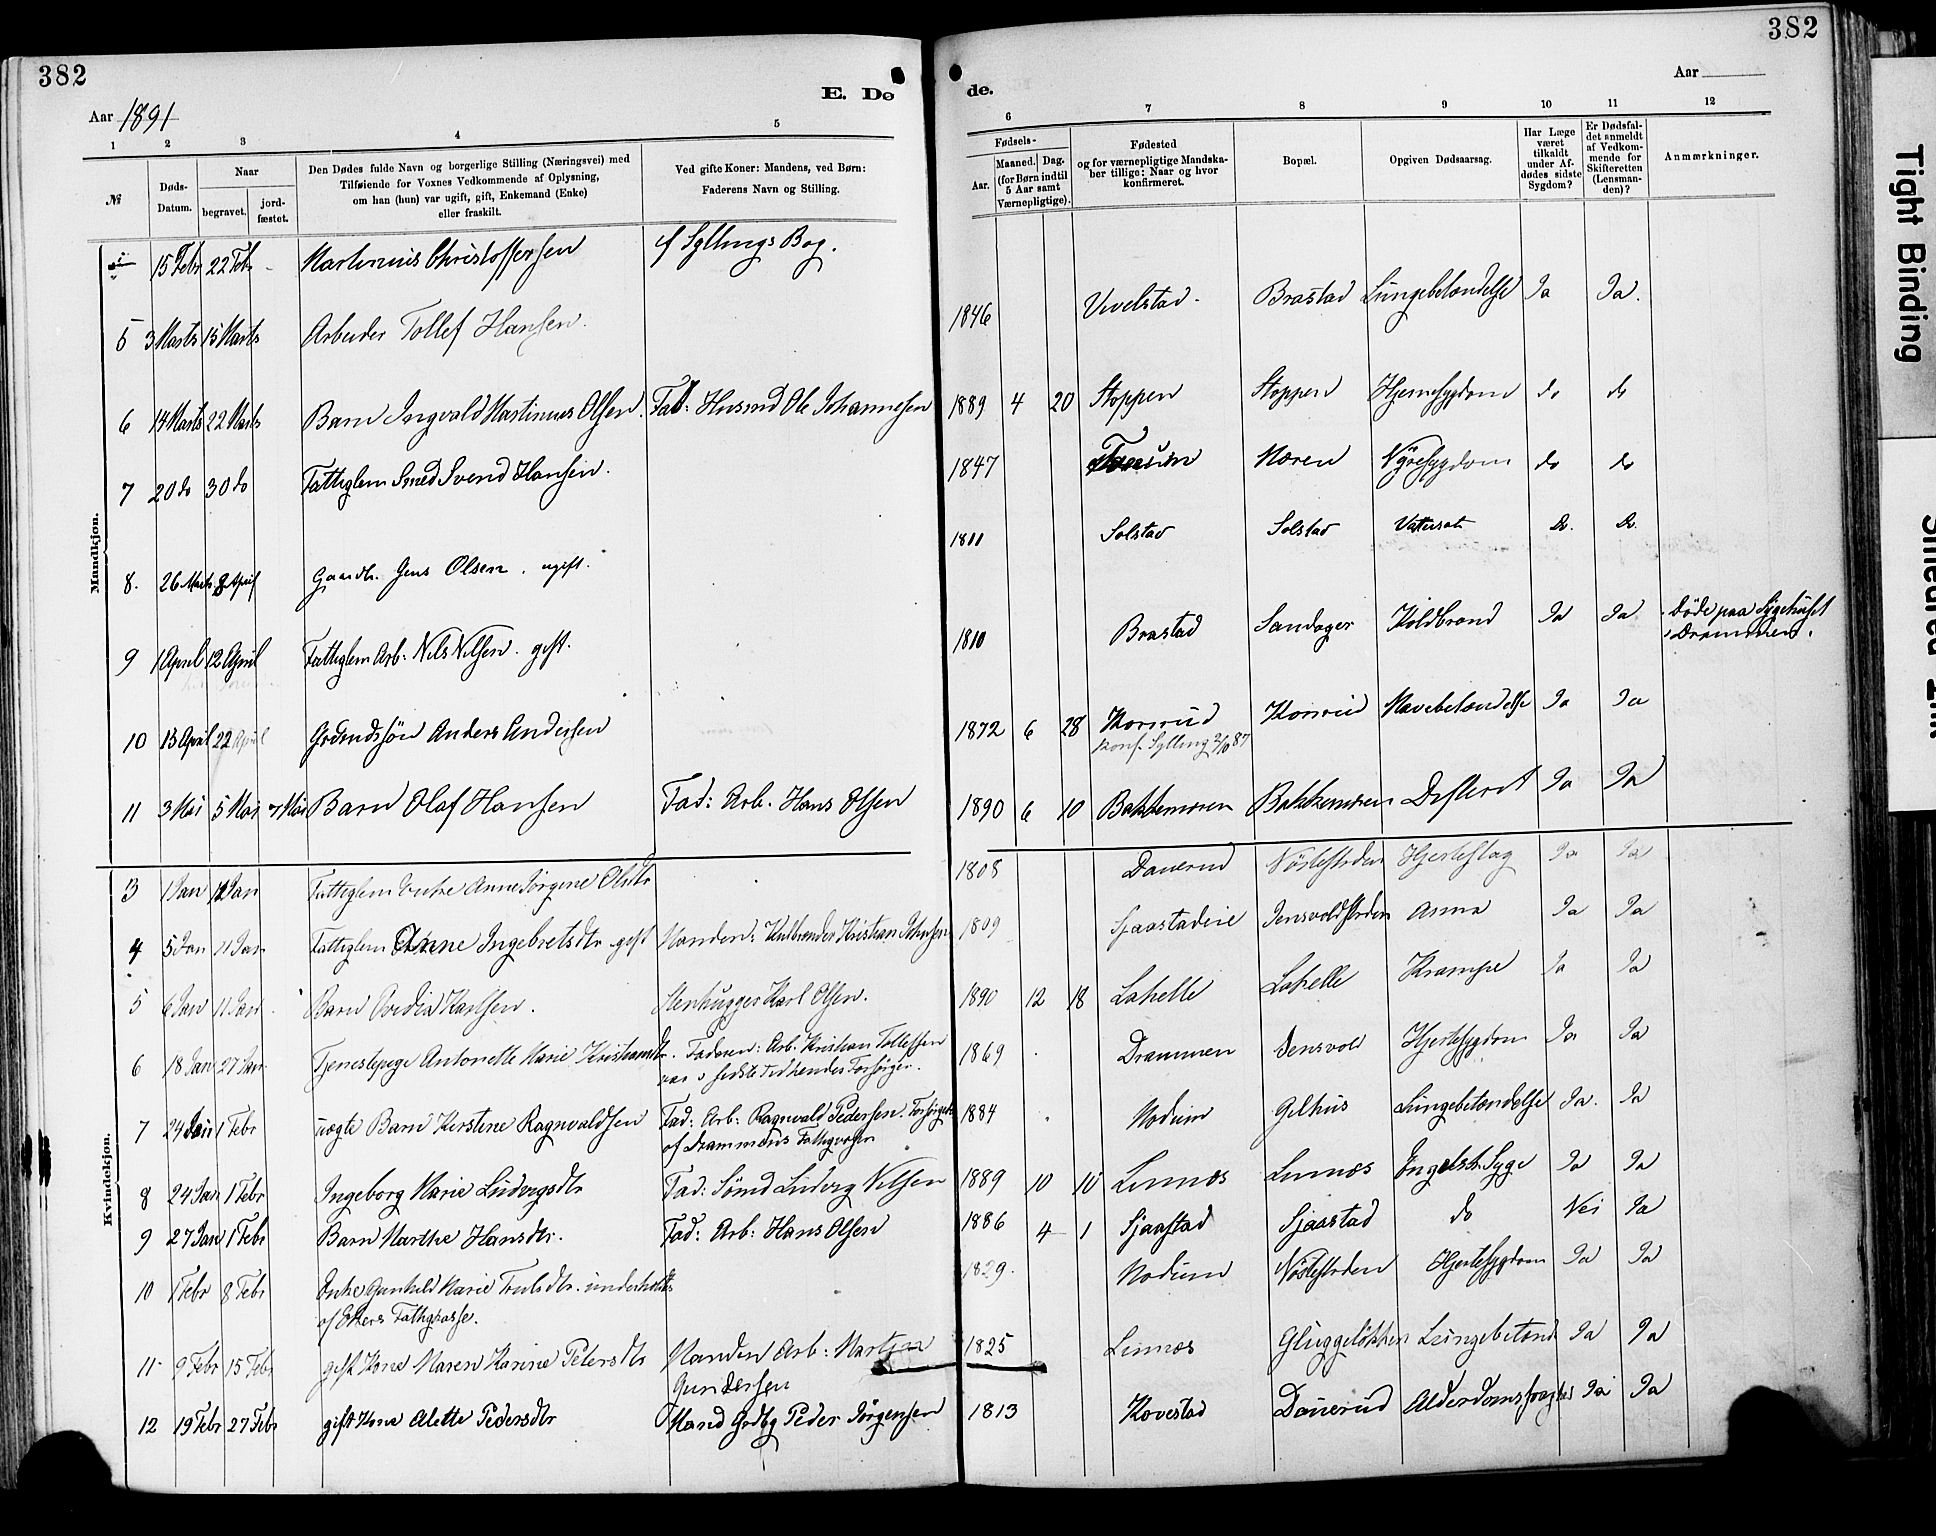 382
Aar 1891
E. Dø
1 2 3 4 5
№
Døds-Datum.
Naar
begravet.
jord-fæstet.
Den Dødes fulde Navn og borgerlige Stilling (Næringsvei) med
Tilføiende for Voxnes Vedkommende af Oplysning,
om han (hun) var ugift, gift, Enkemand (Enke)
eller fraskilt.
Ved gifte Koner: Mandens, ved Børn:
Faderens Navn og Stilling.
Mandkjøn.
15 Febr 22 Feb Martinius Christoffersen cf Syllings Bog.
5 3 Marts 15 Marts Arbeider Tollef Hansen.
6 14 Marts 22 Marts Barn Ingvald Martinius Olsen. Fad: Husmd Ole Johannesen
7 20 do 30 do Fattiglem Smed Svend Hansen.
8. 26 Marts 8 April Gaardbr. Jens Olsen. ugift.
9 1 April 12 April Fattiglem Arb: Nils Nilsen. gift.
10 13 April 22 April Grdmdssøn Anders Andersen
11 3 Mai 5 Mai 7 Mai Barn Olaf Hansen Fad: Arb. Hans Olsen
Kvindekjøn.
3 1 Jan 11 Jan Fattiglem Enke Anne Jørgine Olsdtr
4 5 Jan 11 Jan Fattiglem Anne Ingebretsdtr gift Manden: Kulbrænder Kristian Johnsen
5 6 Jan 11 Jan Barn Ovidia Karlsen. Stenhugger Karl Olsen.
6 18 Jan 27 Jan. Tjenestepige Antonette Marie Kristiansdtr. Faderen: Arb. Kristian Tollefsen
var i sidste Tid hendes Forsørger.
7 24 Jan 1 Febr uægte Barn Kirstine Ragnvaldsen Fad: Arb: Ragnvald Pedersen. Forsørget
af Drammens Fattigvæsen
8 24 Jan 1 Febr Ingeborg Marie Ludvigsdtr Fad: Ludvig Nilsen
9 27 Jan 1 Febr Barn Marthe Hansdtr. Fad: Arb: Hans Olsen
10 1 Febr 8 Febr Enke Gunhild Marie Trulsdtr. underholdt
af Ekers Fattigkasse.
11 9 Febr 15 Febr gift Kone Maren Karine Petersdtr Manden Arb:
Gundersen
12 19 Febr 27 Febr gift Kone Alette Pedersdtr Mand Grdbg Peder Jørgensen
382
de.
Aar
6 7 8 9 10 11 12
Fødsels-
Aar.
Maaned. Dag.
(for Børn indtil
5 Aar samt
Værnepligtige).
Fødested
og for værnepligtige Mandska-
ber tillige: Naar og hvor
konfirmeret.
Bopæl.
Opgiven Dødsaarsag.
Har Læge
været
tilkaldt
under Af-
dødes sidste
Sygdom?
Er Dødsfal-
det anmeldt
af Vedkom-
mende for
Skifteretten
(Lensman-
den)?
Anmærkninger.
1846 Vivelstad. Brastad Lungebetændelse Ja Ja.
1889 4 20 Stoppen Stoppen Hjernesygdom do do
1847 Møren Nyresygdom do do
1811 Solstad Solstad Vatersot Do. Do.
1810 Brastad Sandager Koldbrand Ja Ja Døde paa Sygehuset
i Drammen.
1872 6 28 Korsrud Korsrud Mavebetændelse Ja Ja
Konf. Sylling 2/10 87
1890 6 10 Bakkemoren Bakkemoren Difterit Ja Ja
1808 Danerud Nøstestrden Hjerteslag Ja Ja
1809 Sjaastadeie Jensvoldstrden Asma Ja Ja
1890 12 18 Lahelle Lahelle Krampe Ja Ja
1869 Drammen Jensvold Hjertesygdom Ja Ja
1884 Modum Gilhus Lungebetændelse Ja. Ja
1889 10 10 Linnæs Linnæs Engelsk Syge Ja Ja
1886 4 1 Sjaastad Sjaastad do Nei Ja
1829. Modum Nøstestrden Hjertesygdom Ja Ja
1825 Linnæs Gluggeløkken Lungebetænd Ja Ja
1813 Kovestad Danerud Alderdomssvaghed Ja Ja
Tight Binding